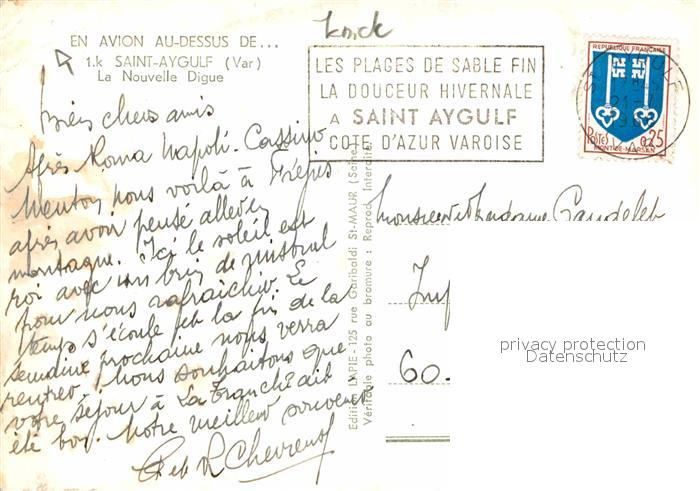 EN AVION AU-DESSUS DE...
1.k SAINT-AYGULF (Var)
La Nouvelle Digue
LES PLAGES DE SABLE FIN
LA DOUCEUR HIVERNALE
A SAINT AYGULF
COTE D'AZUR VAROISE
REPUBLIQUE FRANÇAISE
POSTES 0,25
MONT-DE-MARSAN
Bien chers amis
Après Roma Napoli. Cassino
Menton nous voilà à Fréjus
après avoir pensé aller en
montagne. Ici le soleil est
roi avec un brin de mistral
pour nous rafraichir. Le
temps s'écoule et la fin de la
semaine prochaine nous verra
rentrer. Nous souhaitons que
votre séjour à La Tranche ait
été bon. Notre meilleur souvenir
et R Chevreux
Edition LAPIE - 125 rue Garibaldi St-MAUR (Seine)
Véritable photo au bromure : Reprod. Interdite
Monsieur et Madame
60.
privacy protection
Datenschutz